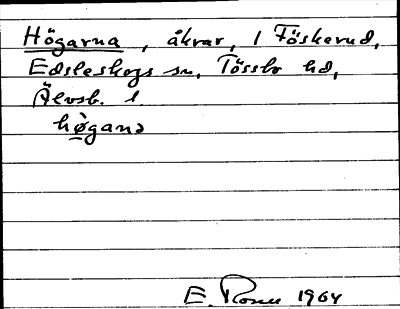 Högarna, åkrar, 1 Föskerud,
Edsleskogs sn, Tössbo hd,
Älvsb. l.
hø̀gană
E. Rosell 1964